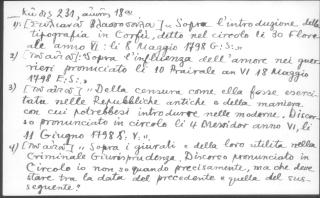 231,
1) [ ] „Sopra l'introduzione della
tipografia in Corfù, detto nel circolo li 30 Flore-
ale anno VI: li 8 Maggio 1798 E:S:"
2) [ ]: Sopra l'influenza dell'amore nei guer-
rieri pronunciato li 10 Prairale an VI 18 Maggio
1798 E:S:"
3) [ ] „Della censura come ella fosse eserci-
tata nelle Repubbliche antiche e della maniera
con cui potrebbesi introdurre nelle moderne. Discor-
so pronunciato in circolo li 4 Messidor anno VI, li
11 Giugno 1798 S. V."
4) [ ] „Sopra i giurati e della loro utilità nella
Criminale Giurisprudenza. Discorso pronunciato in
Circolo io non so quando precisamente, ma che deve
stare tra la data del precedente e quella del sus-
seguente."